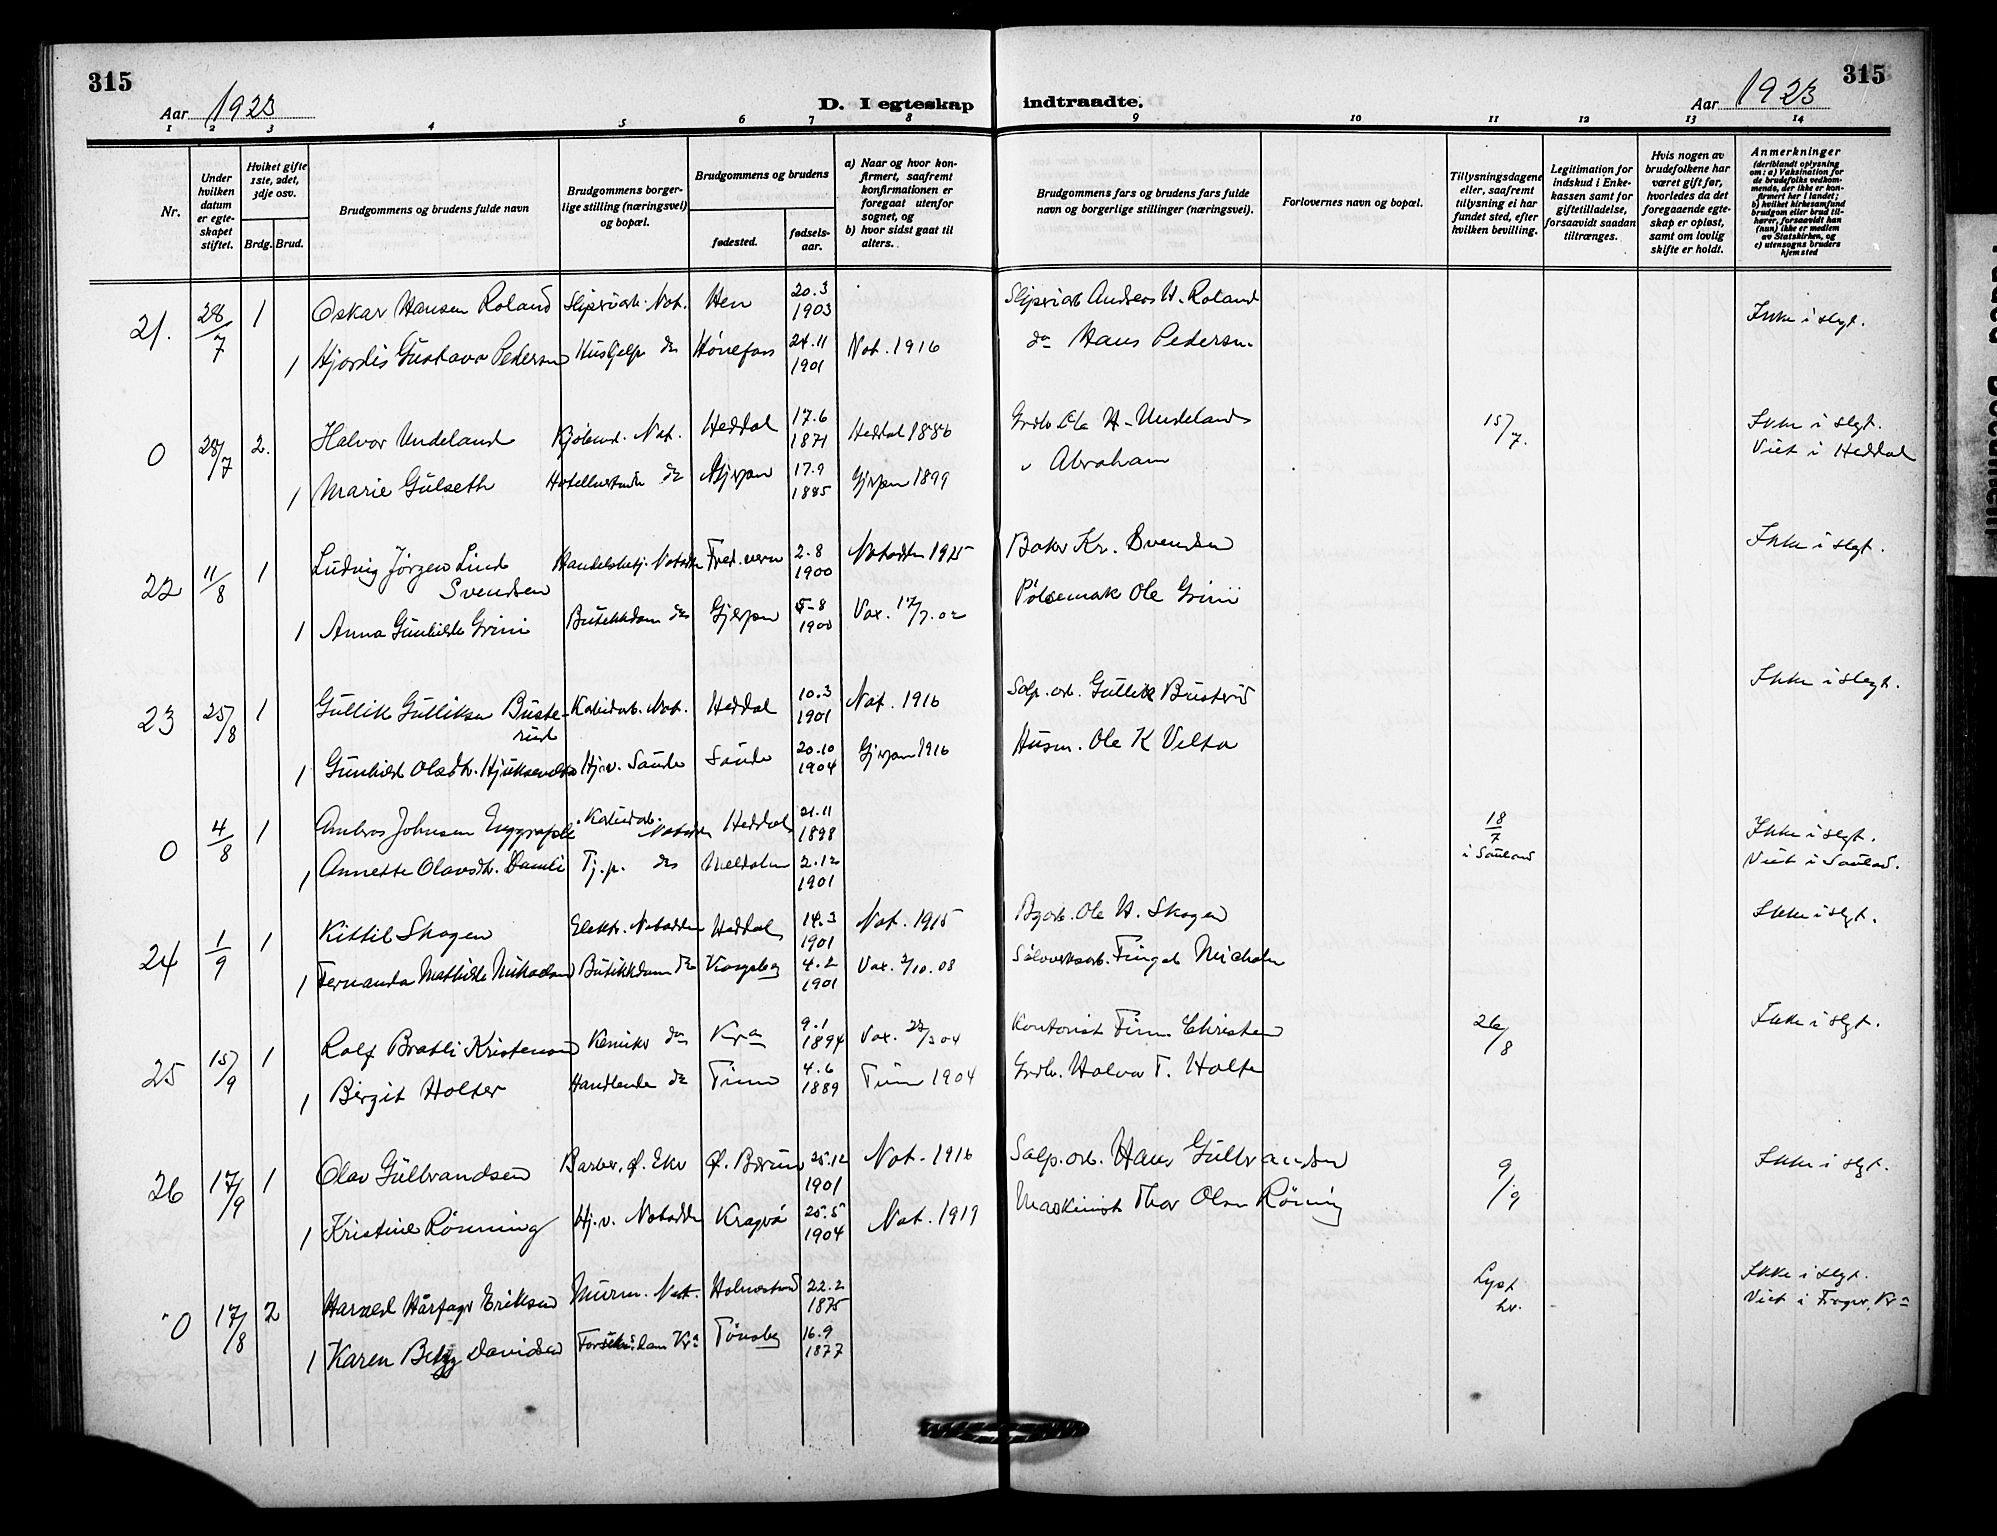 315
315
Aar 1923
D. I egteskap indtraadte.
Aar 1923
1 2 3 4 5 6 7 8 9 10 11 12 13 14
Nr.
Under hvilken datum er egteskapet stiftet.
Hviket gifte 1ste, 2det, 3dje osv.
Brdg. Brud.
Brudgommens og brudens fulde navn
Brudgommens borgerlige stilling (næringsvei) og bopæl.
Brudgommens og brudens
fødested.
fødselsaar.
a) Naar og hvor konfirmert, saafremt konfirmationen er foregaat utenfor sognet, og
b) hvor sidst gaat til alters.
Brudgommens fars og brudens fars fulde navn og borgerlige stillinger (næringsvei).
Forlovernes navn og bopæl.
Tillysningsdagene eller, saafremt tillysning ei har fundet sted, efter hvilken bevilling.
Legitimation for indskud i Enkekassen samt for giftetilladelse, forsaavidt saadan tiltrænges.
Hvis nogen av brudefolkene har været gift før, hvorledes da det foregaaende egteskap er opløst, samt om lovlig skifte er holdt.
Anmerkninger
(deriblandt oplysning om: a) Vaksination for de brudefolks vedkommende, der ikke er konfirmert her i landet; b) hvilket kirkesamfund brudgom eller brud tilhører, forsaavidt han (hun) ikke er medlem av Statskirken, og c) utensogns bruders hjemsted
21. 28/7 1 Oskar Hansen Roland Sliperiarb. Not. Hen 20.3 1903 Sliperiarb Anders H. Roland Ikke i slegt.
1 Hjordis Gustava Pedersen Hushjelp do Hønefoss 24.11 1901 Not. 1916 do Hans Pedersen.
0 28/7 2. Halvor Undeland Kjøbmd. Not. Heddal 17.6 1871 Heddal 1886 Grdb. Ole H. Undeland 15/7. Ikke i slegt.
Viet i Heddal
1 Marie Gulseth do Gjerpen 17.9 1885 Gjerpen 1899 " Abraham
22 11/8 1 Ludvig Jørgen Lind Svendsen Handelsbetj. Notodden Fred.vern 2.8 1900 Notodden 1915 Baker Kr. Svendsen Ikke i slegt.
1 Anna Gunhilde Grini Butikkdam do Gjerpen 5-8 1900 Vax. 17/7.02 Pølsemak Ole Grini
23 25/8 1 Gullik Gulliksen Busterud Karbidarb. Not. Heddal 10.3 1901 Not. 1916 Salp. arb. Gullik Busterud Ikke i slegt.
1 Gunhild Olsdtr. Hj.v. Saude Saude 20.10 1904 Gjerpen 1916 Husm. Ole K Velta
0 4/8 1 Ambros Johnsen Karbidarb. Notodden Heddal 21.11 1898 18/7 i Sauland Ikke i slegt.
Viet i Sauland.
1 Annette Olavsdtr. Damli Tj.p. do 2.12 1901
24 1/9 1 Kittil Skogen Elektr. Notodden Heddal 14.3 1901 Not. 1915 Byarb. Ole H. Skogen Ikke i slegt.
1 Fernanda Mathilde Butikkdam do Kongsberg 4.2 1901 Vax. 2/10.08 Sølvverksarb.
25 15/9 1 Rolf Bratli Kristensen Kemiker do Kra 9.1 1894 Vax. Kontorist Finn Christensen 26/8 Ikke i slegt.
1 Birgit Holter Handlende do Tinn 4.6 1889 Tinn 1904 Grdb. Halvor T. Holte
26 17/9 1 Olav Gulbrandsen Barber, Ø. Eker Ø. Bærum 25.12 1901 Not. 1916 Salp. arb. Hans Gulbrandsen 9/9 Ikke i slegt.
1 Kristine Rønning Hj.v. Notodden Kragerø 25.5 1904 Not. 1919 Maskinist Thor Olsen Rønning
0 17/8 2 Harald Hårfagr Eriksen Murm. Not. Holmestrand 22.2 1875 Lyst hr. Ikke i slegt.
Viet i Frogner, Kra
1 Karen Betzy Davidsen Kra Tønsberg 16.9 1877